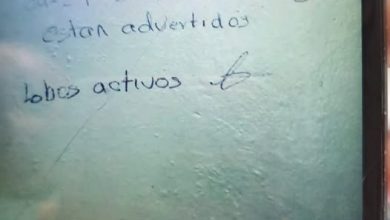 estan advertidos
Lobos activos